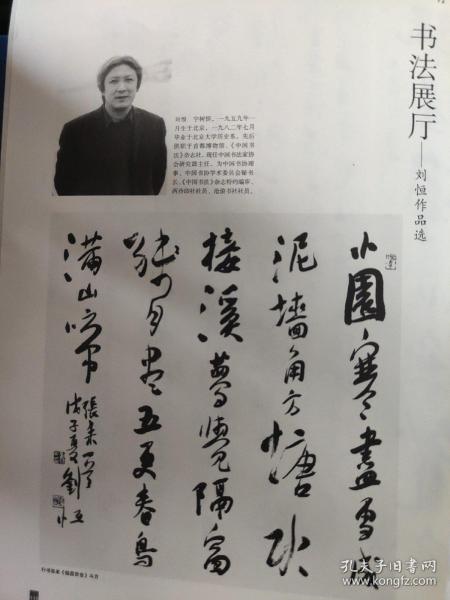 书法展厅——刘恒作品选
刘恒　字树恒，一九五九年一
月生于北京，一九八二年七月
毕业于北京大学历史系，先后
供职于首都博物馆、《中国书
法》杂志社，现任中国书法家协
会研究部主任，为中国书协理
事、中国书协学术委员会秘书
长、《中国书法》杂志特约编审、
西泠印社社员、沧浪书社社员。
小園寒盡雪成
泥墻角方塘水
接溪夢覺隔窗
殘月盡五更春鳥
滿山啼
張耒一首
戊子夏劉恒
孔夫子旧书网